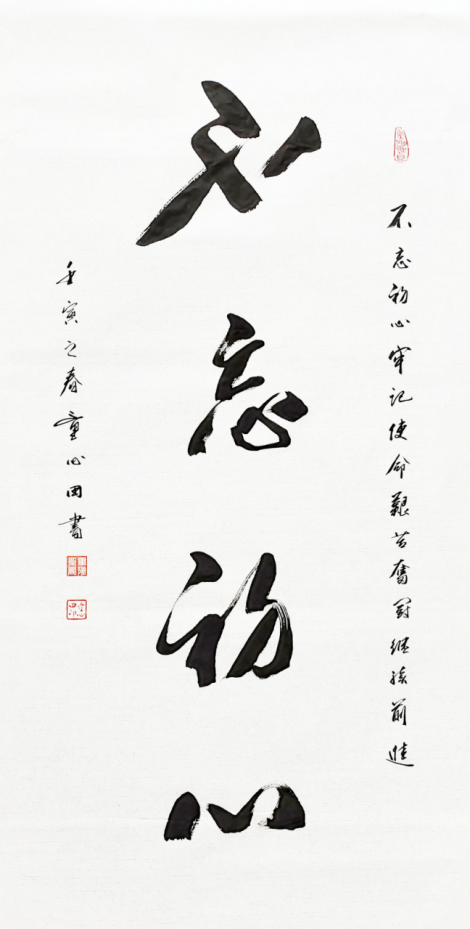 不忘初心牢记使命艰苦奋斗继续前进
不忘初心
壬寅之春童心田書